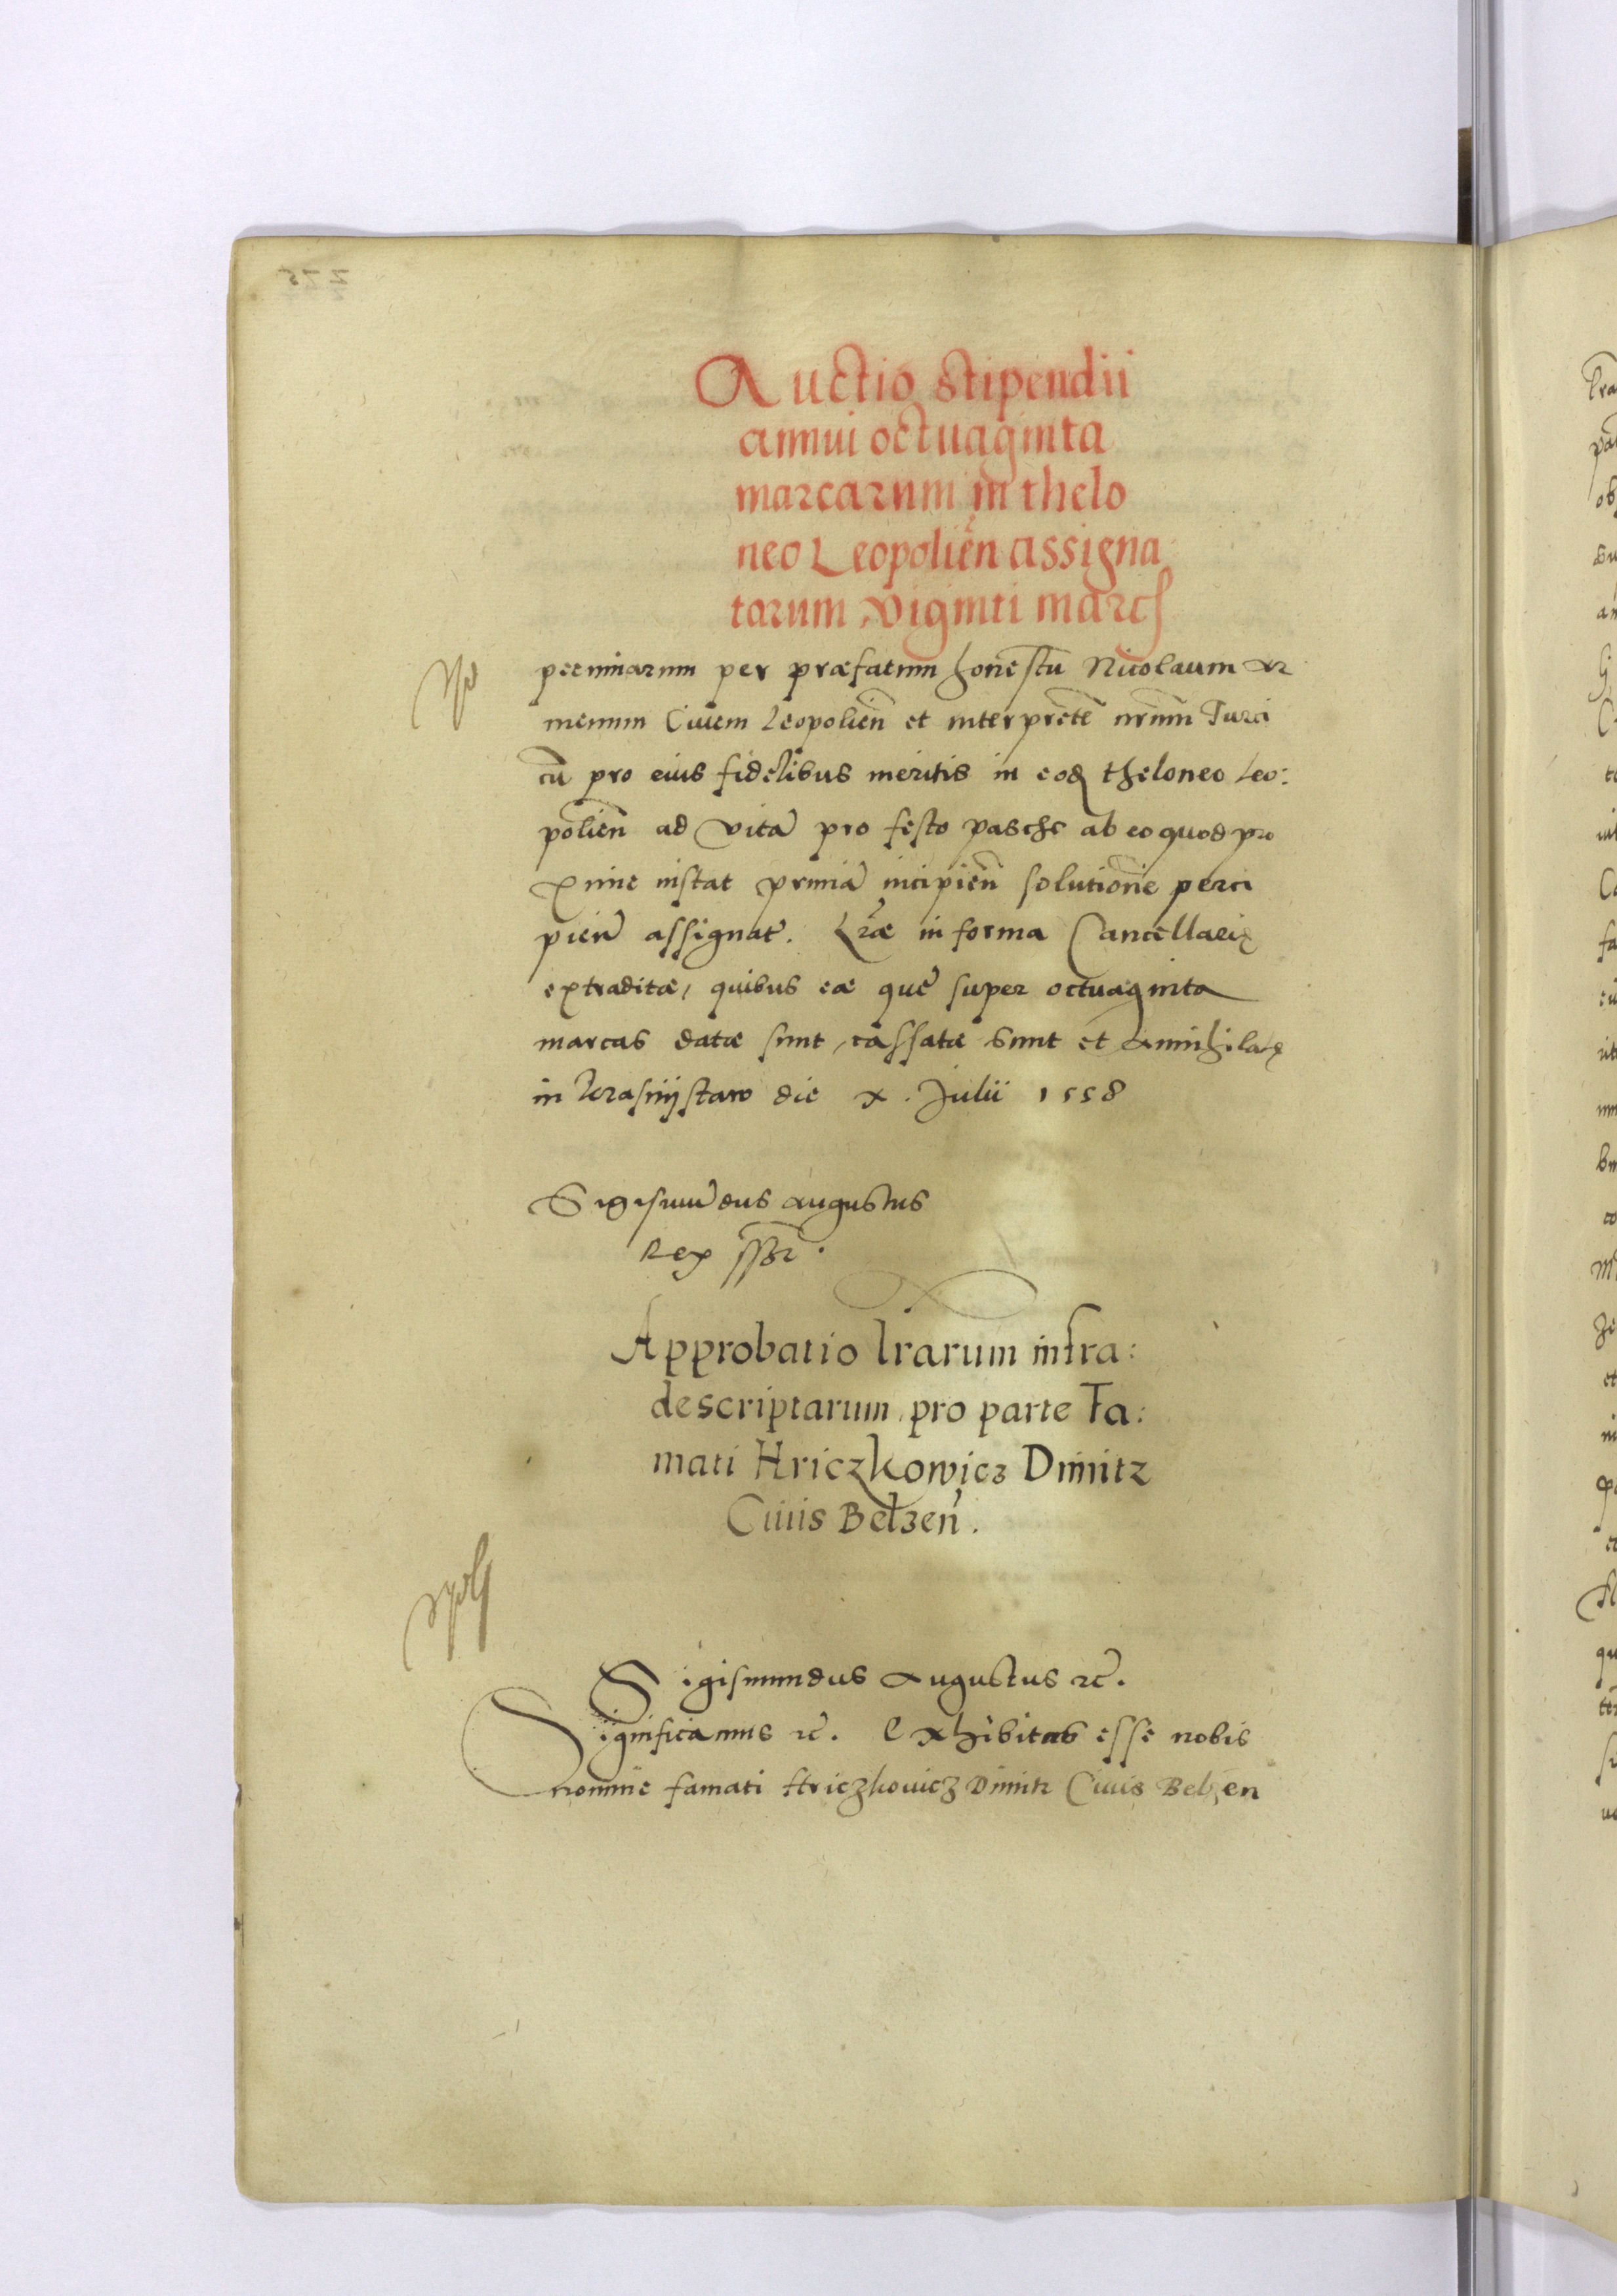 Auctio stipendii
annui octuaginta
marcarum in thelo
neo Leopolień assigna
torum, viginti marc
pecuniarum per præfatum honestū Nicolaum Ar
menum Civem Leopolień et interpretē nrūm Turci
cū pro eius fidelibus meritis in eod theloneo Leo:
polień ad vitā pro festo paschę ab eo quod pro
xime instat primā incipień solutione perci
pień assignat. Lræ in forma Cancellarię
extraditæ, quibus eæ que super octuaginta
marcas datæ sunt, cassatæ sunt et annihilatę
in Krasnijstaw die x. Julii 1558
Sigismūdus augustus
Rex sst.
Approbatio lrarum infra:
descriptarum, pro parte Fa:
mati Hriczkowicz Dimitr
Civis Belzeń.
Sigismundus Augustus rc.
Significamus rc. Exhibitas esse nobis
nomine famati Hriczkowicz Dimitr Civis Belzen